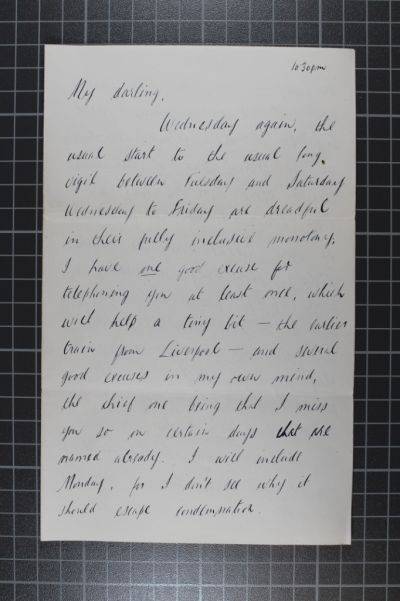 10 30pm
My darling,
Wednesday again, the
usual start to the usual long
vigil between Tuesday and Saturday
Wednesday to Friday are dreadful
in their fully inclusive monotony.
I have one good excuse for
telephoning you at least once, which
will help a tiny bit – the earlier
train from Liverpool – and several
good excuses in my own mind,
the chief one being that I miss
you so on certain days that are
named already. I will include
Monday, for I don't see why it
should escape condemnation.